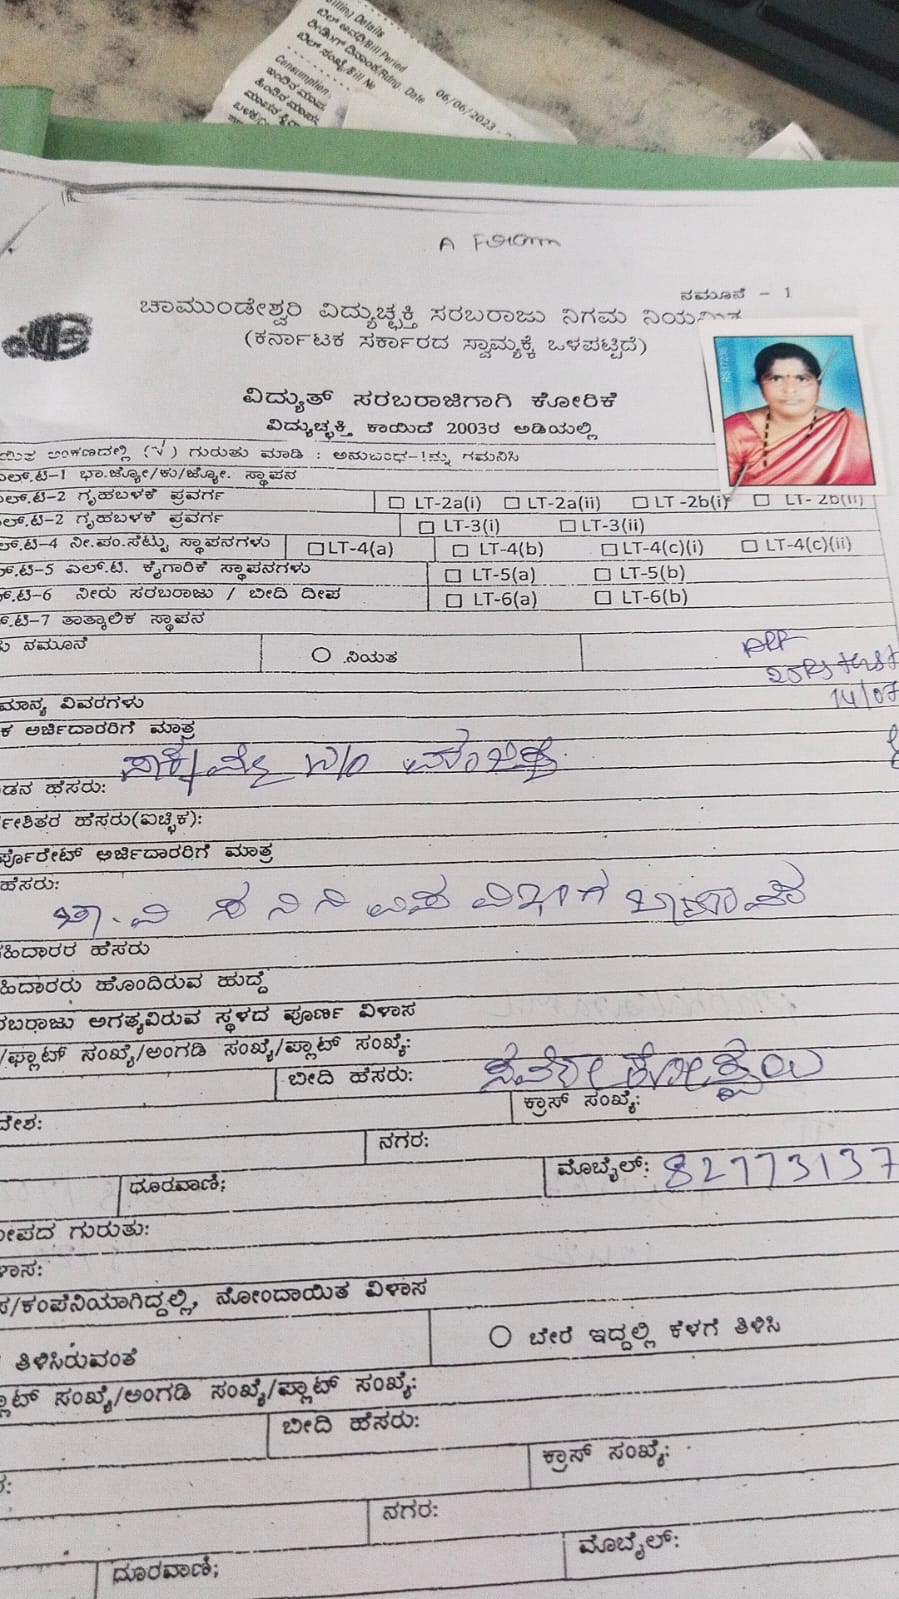 Billing Details
ಬಿಲ್ ಅವಧಿ/Bill Period
ರೀಡಿಂಗ್ ದಿನಾಂಕ/Rdng. Date 06/06/2023
ಬಿಲ್ ಸಂಖ್ಯೆ/Bill No
Consumption
A Form
ನಮೂನೆ - 1
ಚಾಮುಂಡೇಶ್ವರಿ ವಿದ್ಯುಚ್ಛಕ್ತಿ ಸರಬರಾಜು ನಿಗಮ
(ಕರ್ನಾಟಕ ಸರ್ಕಾರದ ಸ್ವಾಮ್ಯಕ್ಕೆ ಒಳಪಟ್ಟಿದೆ)
ವಿದ್ಯುತ್ ಸರಬರಾಜಿಗಾಗಿ ಕೋರಿಕೆ
ವಿದ್ಯುಚ್ಛಕ್ತಿ ಕಾಯಿದೆ 2003ರ ಅಡಿಯಲ್ಲಿ
(√) ಗುರುತು ಮಾಡಿ : ಅನುಬಂಧ-!ನ್ನು ಗಮನಿಸಿ
ಎಲ್.ಟಿ-1 ಭಾ.ಜ್ಯೋ/ಕು/ಜ್ಯೋ. ಸ್ಥಾಪನ
ಎಲ್.ಟಿ-2 ಗೃಹಬಳಕೆ ಪ್ರವರ್ಗ LT-2a(i) LT-2a(ii) LT -2b(i) LT- 2b(ii)
ಲ್.ಟಿ-2 ಗೃಹಬಳಕೆ ಪ್ರವರ್ಗ LT-3(i) LT-3(ii)
ಲ್.ಟಿ-4 ನೀ.ಪಂ.ಸೆಟ್ಟು ಸ್ಥಾಪನಗಳು LT-4(a) LT-4(b) LT-4(c)(i) LT-4(c)(ii)
ಲ್.ಟಿ-5 ಎಲ್.ಟಿ. ಕೈಗಾರಿಕೆ ಸ್ಥಾಪನಗಳು LT-5(a) LT-5(b)
ಲ್.ಟಿ-6 ನೀರು ಸರಬರಾಜು / ಬೀದಿ ದೀಪ LT-6(a) LT-6(b)
ಲ್.ಟಿ-7 ತಾತ್ಕಾಲಿಕ ಸ್ಥಾಪನ
ನಮೂನೆ ನಿಯತ
14/07
ಮಾನ್ಯ ವಿವರಗಳು
ಕ ಅರ್ಜಿದಾರರಿಗೆ ಮಾತ್ರ
W/o
ಡನ ಹೆಸರು:
ಹೆಸರು(ಐಚ್ಛಿಕ):
ರ್ಪೊರೇಟ್ ಅರ್ಜಿದಾರರಿಗೆ ಮಾತ್ರ
ಹೆಸರು:
ಹಿದಾರರ ಹೆಸರು
ಹಿದಾರರು ಹೊಂದಿರುವ ಹುದ್ದೆ
ರಬರಾಜು ಅಗತ್ಯವಿರುವ ಸ್ಥಳದ ಪೂರ್ಣ ವಿಳಾಸ
/ಫ್ಲಾಟ್ ಸಂಖ್ಯೆ/ಅಂಗಡಿ ಸಂಖ್ಯೆ/ಪ್ಲಾಟ್ ಸಂಖ್ಯೆ:
ಬೀದಿ ಹೆಸರು:
ದೇಶ: ಕ್ರಾಸ್ ಸಂಖ್ಯೆ:
ನಗರ:
ಧೂರವಾಣಿ; ಮೊಬೈಲ್: 82773137
ೀಪದ ಗುರುತು:
ಳಾಸ:
ಸ/ಕಂಪೆನಿಯಾಗಿದ್ದಲ್ಲಿ, ನೋಂದಾಯಿತ ವಿಳಾಸ
ತಿಳಿಸಿರುವಂತೆ ಬೇರೆ ಇದ್ದಲ್ಲಿ ಕೆಳಗೆ ತಿಳಿಸಿ
ಲಾಟ್ ಸಂಖ್ಯೆ/ಅಂಗಡಿ ಸಂಖ್ಯೆ/ಪ್ಲಾಟ್ ಸಂಖ್ಯೆ:
ಬೀದಿ ಹೆಸರು:
ಕ್ರಾಸ್ ಸಂಖ್ಯೆ:
ನಗರ:
ಧೂರವಾಣಿ; ಮೊಬೈಲ್: